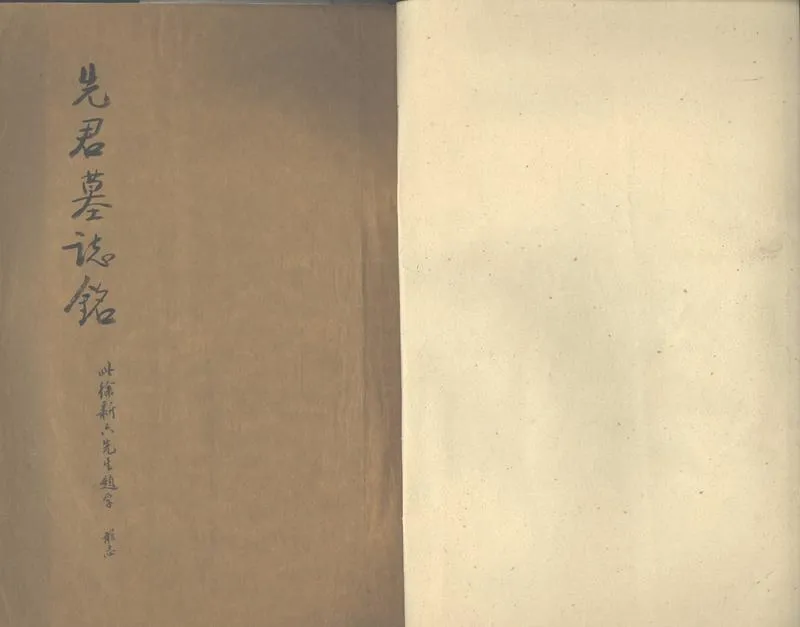 先君墓誌銘
此徐新六先生題字 志